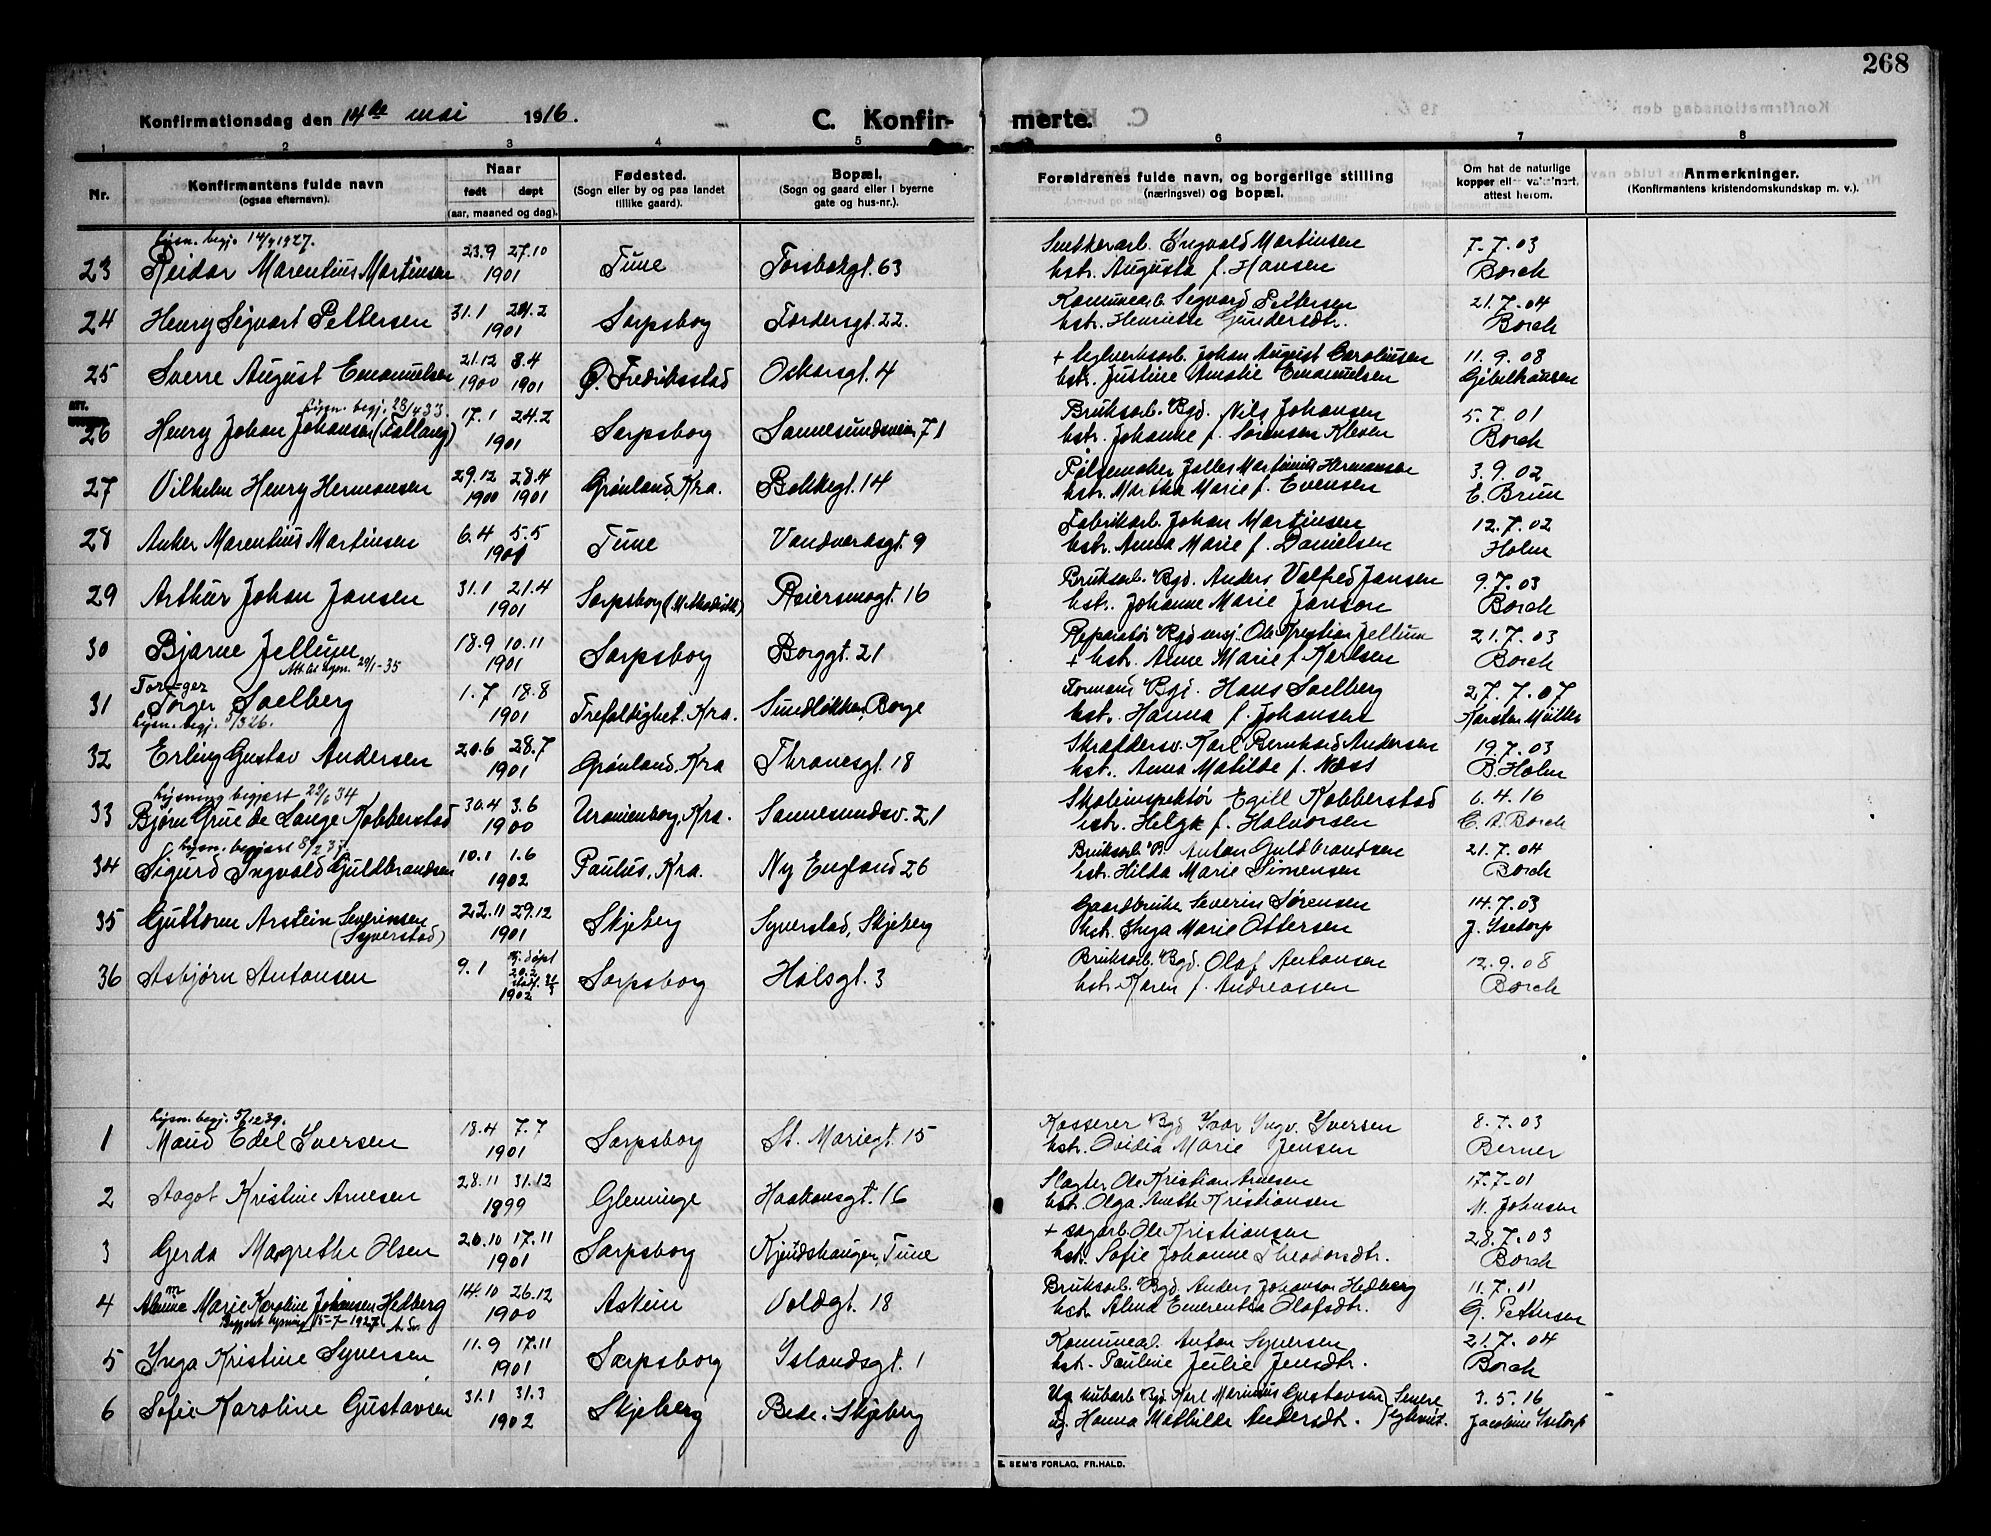 268
Konfirmationsdag den 14de mai 1916.
C. Konfirmerte.
1 2 3 4 5 6 7 8
Nr.
Konfirmantens fulde navn
(ogsaa efternavn).
Naar
født døpt
(aar, maaned og dag).
Fødested.
(Sogn eller by og paa landet
tillike gaard).
Bopæl.
(Sogn og gaard eller i byerne
gate og hus-nr.).
Forældrenes fulde navn, og borgerlige stilling
(næringsvei) og bopæl.
Om hat de naturlige
kopper eller vaksinert,
attest herom.
Anmerkninger.
(Konfirmantens kristendomskundskap m. v.).
lysn. begj. 14/9 1927.
23 Reidar Marentius Martinsen 23.9 27.10 1901 Tune Torsbekgt. 63
Snekkerarb. Yngvald Martinsen 7-7.03
hstr. Augusta f. Hansen Borch
24 Henry Sigvart Pettersen 31.1 24.2 1901 Sarpsborg Tordersgt. 22.
Komunearb. Segvard Pettersen 21.7.04
hstr. Henriette Gundersdtr. Borch
25 Sverre August Emanuelsen 21.12 1900 8.4 1901 Ø. Fredriksstad Oskarsgt. 4
+ Teglverksarb. Johan August Carolinsen 11.9.08
hstr. Justine Amalie Emanuelsen Gibelhausen
lysn. begj. 28/4 33.
26 Henry Johan Johansen (Fallang) 17.1 24.2 1901 Sarpsborg Sannesundsveien 71
Bruksarb. Bgd. Nils Johansen 5.7.01
hstr. Johanne f. Sørensen Kleven Borch
27 Vilhelm Henry Hermansen 29.12 1900 28.4 1901 Grønland, Kra. Bakkegt. 14
Pølsemaker Jalles Martinius Hermansen 3.9.02
hstr. Martha Marie f. Evensen E. Bruu
28 Anker Marentius Martinsen 6.4 5.5 1901 Tune Vandverksgt. 9
Fabrikarb. Johan Martinsen 12.7.02
hstr. Anna Marie f. Danielsen Holm
29 Arthur Johan Jansen 31.1 21.4 1901 Sarpsborg (Methodistk) Reiersmogt 16
Bruksarb. Bgd. Anders Valfred Jansen 9.7.03
hstr. Johanne Marie Janson Borch
30 Bjarne Jellum 18.9 10.11 1901 Sarpsborg Borggt. 21
Att. til lysn. 29/1-35
Reparatør Bgd versj. Ole Kristian Jellum 21.7.03
+ hstr. Anne Marie f. Karlsen Borch
Tor-ger
31 Torger Solberg 1.7 18.8 1901 Trefoldighet. Kra. Sundløkken, Borge
lysn. begj. 5/3 26.
Formand Bgd. Hans Solberg 27.7.07
hstr. Hanna f. Johansen Karsten Müller
32 Erling Gustav Andersen 20.6 28.7 1901 Grønland, Kra Thranesgt. 18
Skræddersv. Karl Bernhard Andersen 19.7.03
hstr. Anna Matilde f. Næss B. Holm
Lysning begjært 22/6 34
33 Bjørn Grue de Lange Kobberstad 30.4 3.6 1900 Uranienborg, Kra. Sannesundsv. 21
Skoleinspektør Egill Kobberstad 6.4.16
hstr. Helga f. Halvorsen C. A. Borch
lysn. begjært 8/2 37.
34 Sigurd Ingvald Guldbrandsen 10.1 1.6 1902 Paulus, Kra. Ny England 26
Bruksarb. B. Anton Guldbrandsen 21.7.04
hstr. Hilda Marie Simensen Borch
35 Guttorm Arstein Severinsen (Syverstad) 22.11 29.12 1901 Skjeberg Syverstad, Skjeberg
Gaardbruker Severin Sørensen 14.7.03
hstr. Inga Marie Ottersen J. Isetorp
36 Asbjørn Antonsen 9.1 hj. døpt 20.2 1902 Sarpsborg Halsgt. 3
Bruksarb. Bgd. Olaf Antonsen 12.9.08
hstr. Karen f. Andreassen Borch
lysn. begj. 5/12 39.
1 Maud Edel Iversen 18.4 7.7 1901 Sarpsborg St. Mariegt. 15
Kasserer Bgd Ivar Ingv. Iversen 8.7.03
hstr. Ovidia Marie Jensen Berner
2 Aagot Kristine Arnesen 28.11 31.12 1899 Glemminge Haakonsgt. 16
Slagter Ole Kristian Arnesen 17-7-01
hst. Olga Anette Kristiansen M. Johnsen
3 Gerda Magrethe Olsen 20.10 17.11 1901 Sarpsborg Kjendshaugen, Tune
+ sagarb. Ole Kristiansen 28.7.03
hst. Sofie Johanne Theodorsdtr. Borch
4 Alma Marie Karoline Johansen Hedberg 14.10 26.12 1900 Askim Voldgt. 18
Begjært lysning 15-7-1927
Bruksarb. Bgd. Anders Johanson Hedberg 11.7.01
hstr. Alma Emerentsa Olofsdtr. G. Pettersen
5 Inga Kristine Syversen 11.9 17.11 1901 Sarpsborg Islandsgt. 1
Komuneal. Anton Syversen 21.7.04
hstr. Pauline Julie Jensdtr. Borch
6 Sofie Karoline Gustavsen 31.1 31.3 1902 Skjeberg Bede, Skjeberg
Ug. Karl Marinius Gustavsen 3.5.16
ug. Hanna Mathilde Andersdt. Jacobine Isetorp
E. SEM'S FORLAG, FR.HALD.